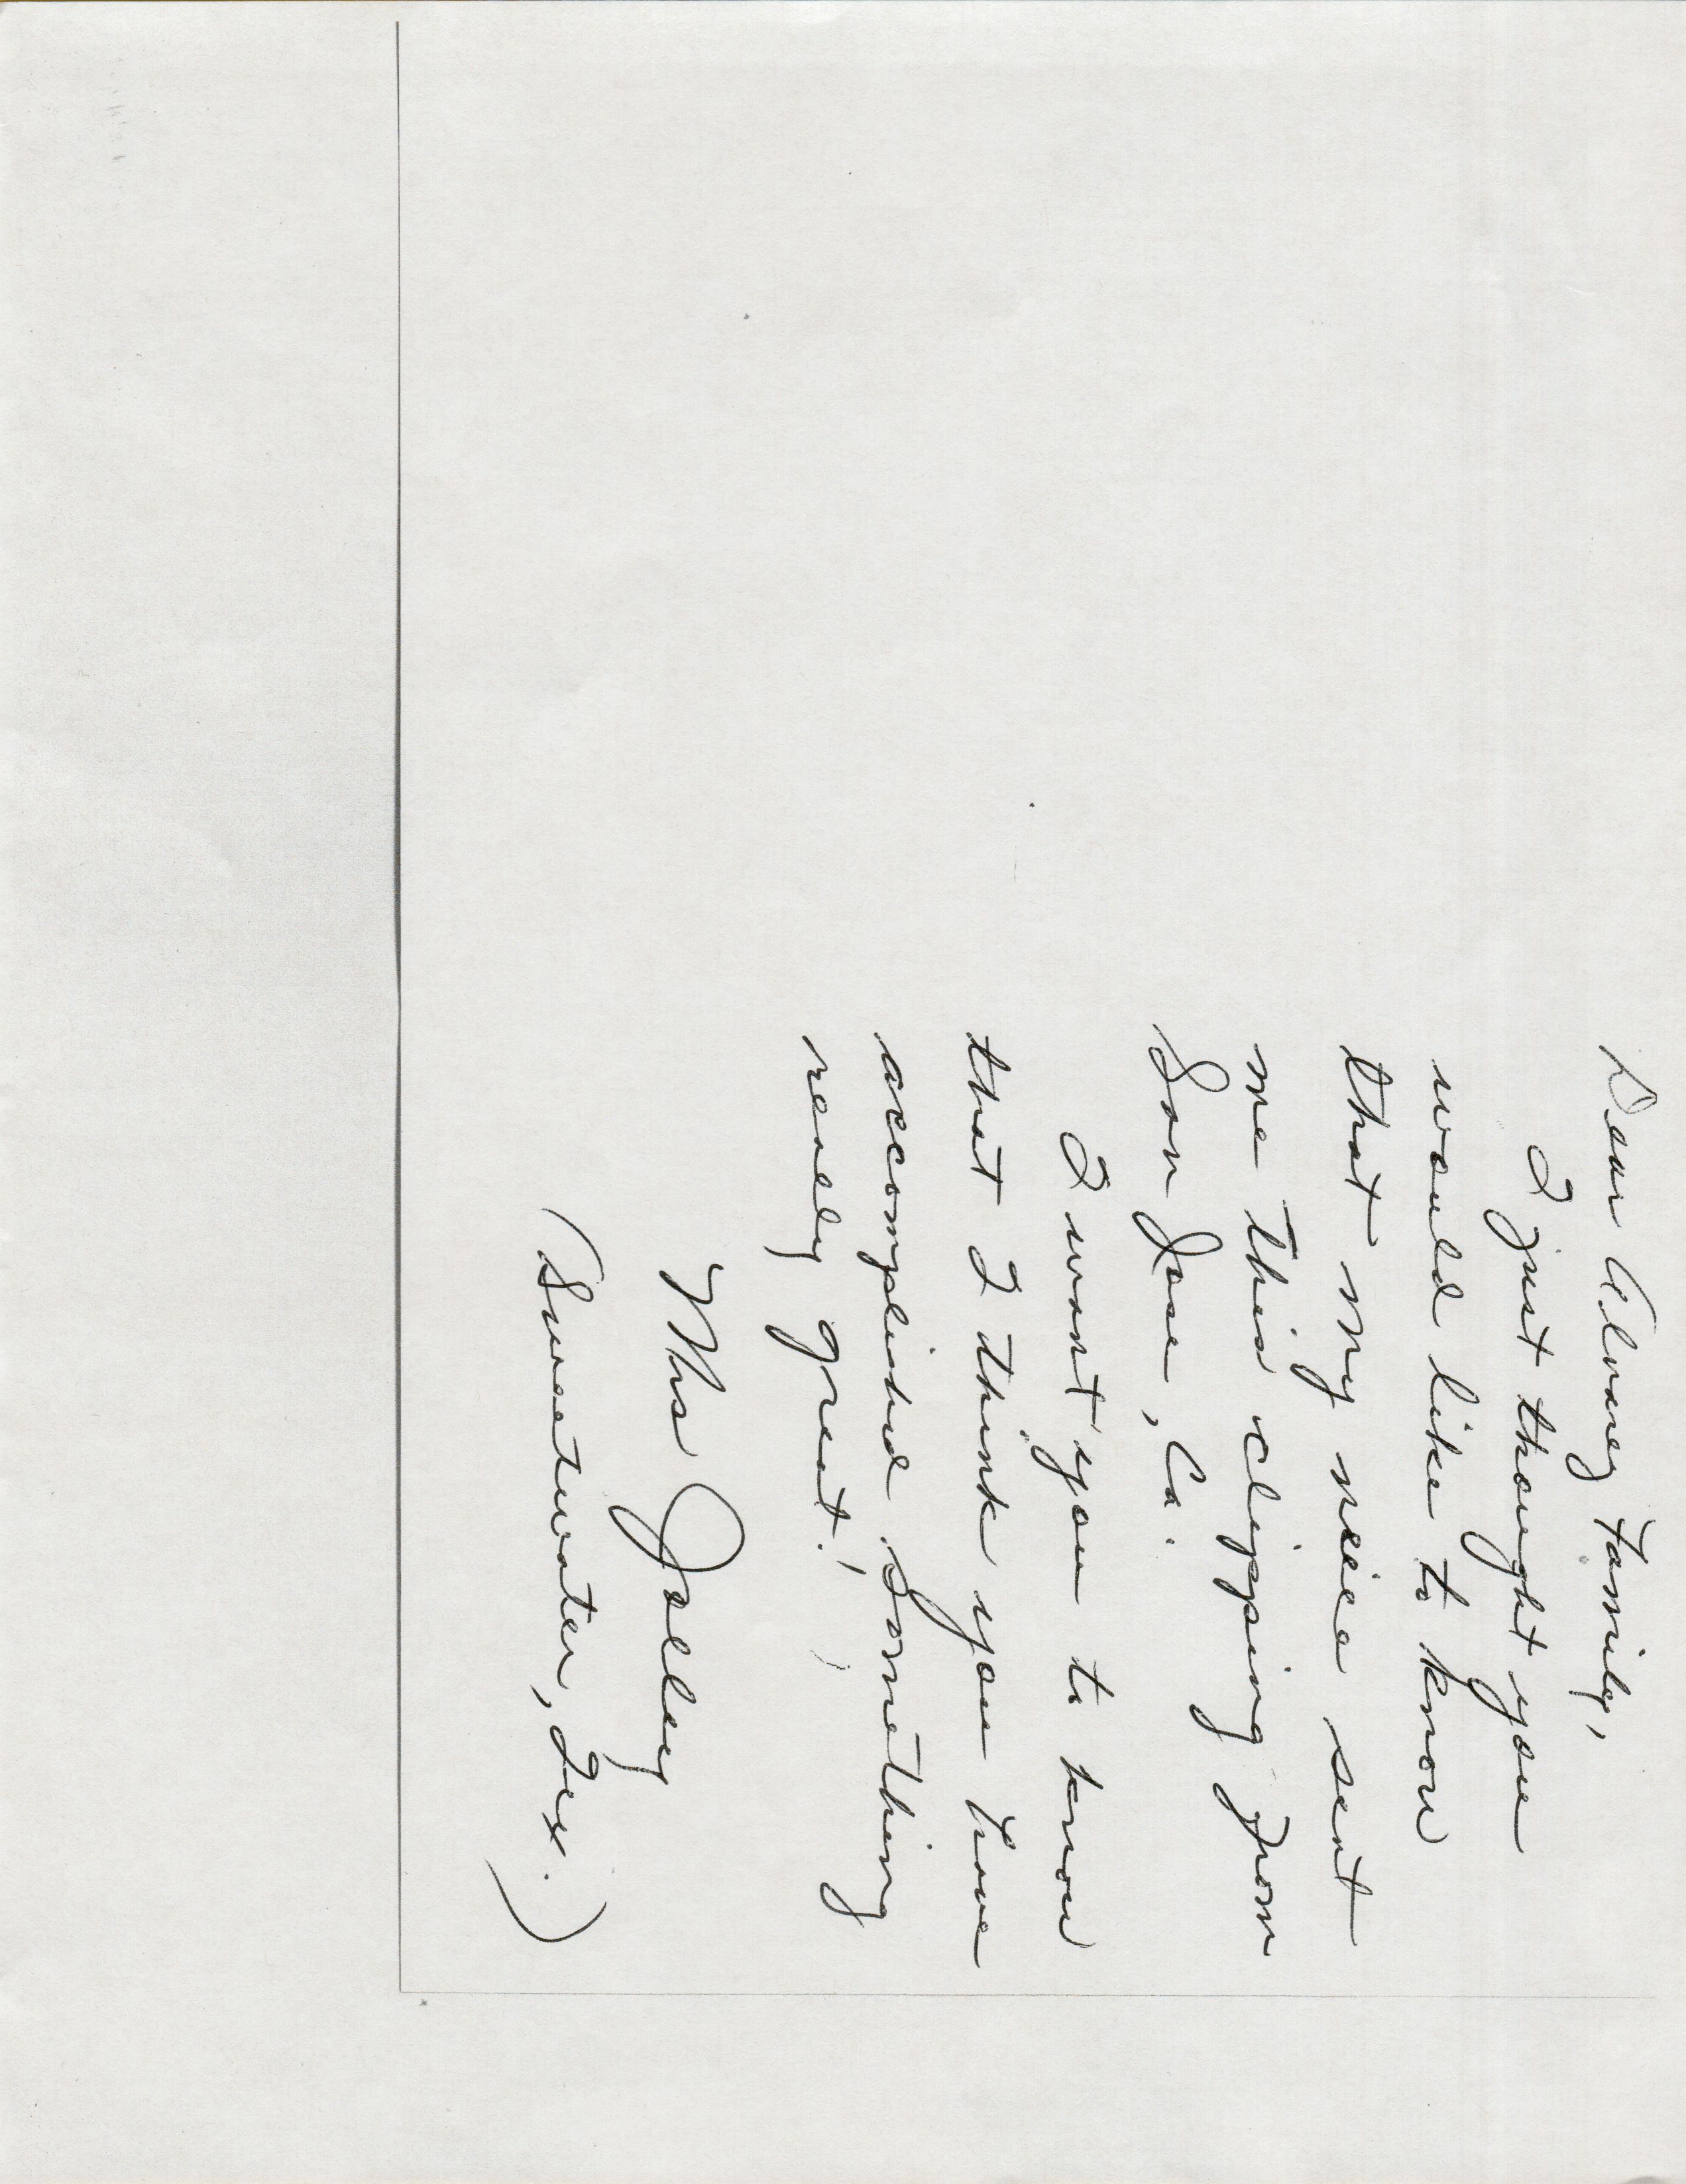 Dear Alvarez Family,
I just thought you
would like to know
that my niece sent
me this clipping from
San Jose, Ca.
I want you to know
that I think you have
accomplished something
really great!
Mrs Jolley
(Sweetwater, Tex.)